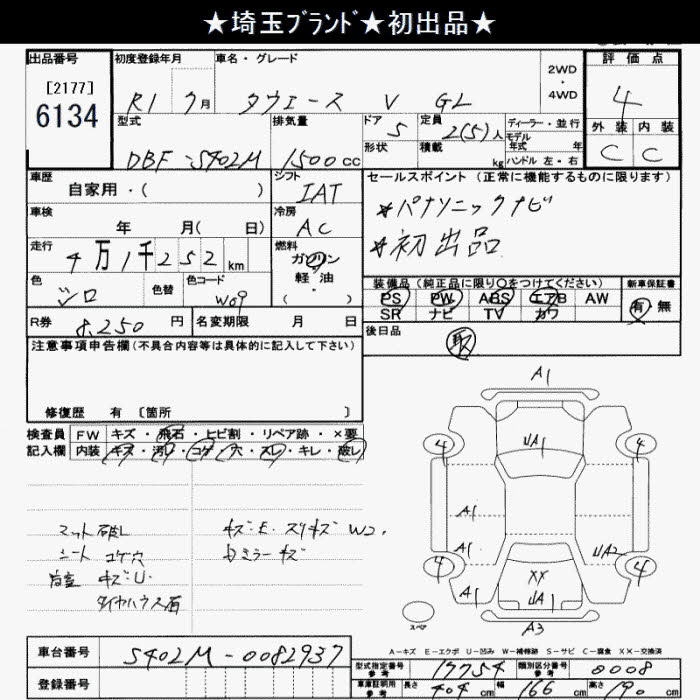 ★埼玉ﾌﾞﾗﾝﾄﾞ★初出品★
出品番号
[2177]
6134
初度登録年月
R1 7月
車名・グレード
タウエース V GL
2WD
・
4WD
評価点
4
外装 内装
C C
型式
DBF-S402M
排気量
1500cc
ドア
5
形状
定員
2(5)人
積載
kg
ディーラー・並行
モデル
年式 年
ハンドル 左・右
車歴
自家用・( )
シフト
IAT
セールスポイント (正常に機能するものに限ります)
*パナソニックナビ
*初出品
車検
年 月( 日)
冷房
AC
走行
4万1千252km
燃料
ガソリン
軽油
・( )
色
シロ
色替
色コード
W09
装備品(純正品に限り○をつけてください)
PS PW ABS エアB AW
SR ナビ TV カワ
新車保証書
有・無
R券 8,250円
名変期限 月 日
後日品
取
注意事項申告欄(不具合内容等は具体的に記入して下さい)
修復歴 有 〔箇所 〕
検査員
記入欄
FW キズ・飛石・ヒビ割・リペア跡・×要
内装 キズ・汚レ・コゲ・穴・スレ・キレ・破レ
マット破レ
シート コゲ穴
荷室 キズ・U・
タイヤハウス石
キズ・E・スリキズ W2,
白ミラーキズ
A1
4
UA1
4
A1
A1
UA2
4
XX
4
A1
UA1
A1
A3
スペア
A-キズ E-エクボ U-凹み W-補修跡 S-サビ C-腐食 XX-交換済
車台番号
S402M-0082937
登録番号
型式指定番号
参考
17754
類別区分番号
参考
8008
車庫証明用
参考
長さ 404cm 幅 166cm 高さ 190cm